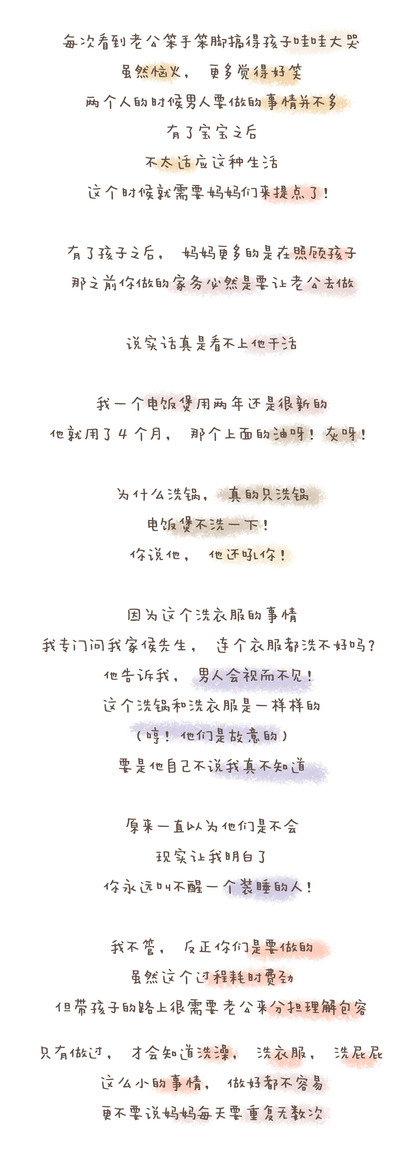 每次看到老公笨手笨脚搞得孩子哇哇大哭
虽然恼火， 更多觉得好笑
两个人的时候男人要做的事情并不多
有了宝宝之后
不太适应这种生活
这个时候就需要妈妈们来提点了！
有了孩子之后， 妈妈更多的是在照顾孩子
那之前你做的家务必然是要让老公去做
说实话真是看不上他干活
我一个电饭煲用两年还是很新的
他就用了4个月， 那个上面的油呀！灰呀！
为什么洗锅， 真的只洗锅
电饭煲不洗一下！
你说他， 他还吼你！
因为这个洗衣服的事情
我专门问我家侯先生， 连个衣服都洗不好吗？
他告诉我， 男人会视而不见！
这个洗锅和洗衣服是一样样的
（哼！他们是故意的）
要是他自己不说我真不知道
原来一直以为他们是不会
现实让我明白了
你永远叫不醒一个装睡的人！
我不管， 反正你们是要做的
虽然这个过程耗时费劲
但带孩子的路上很需要老公来分担理解包容
只有做过， 才会知道洗澡， 洗衣服， 洗屁屁
这么小的事情， 做好都不容易
更不要说妈妈每天要重复无数次